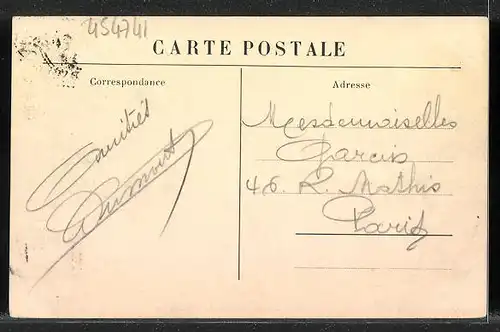 454741
CARTE POSTALE
Correspondance
Adresse
Amitiés
Dumont
Mesdemoiselles
Garcin
46. R. Mathis
Paris